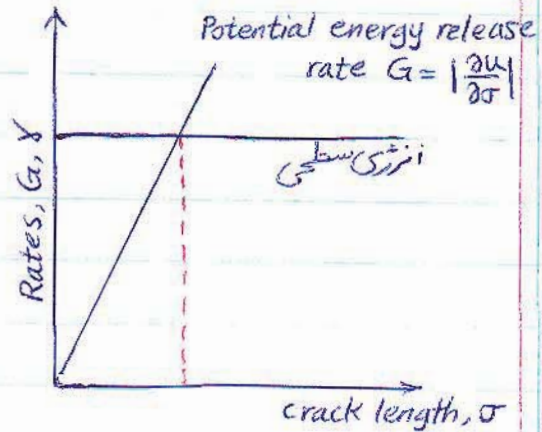 Potential energy release
rate G = |∂u/∂σ|
انرژی سطحی
Rates, G, γ
crack length, σ